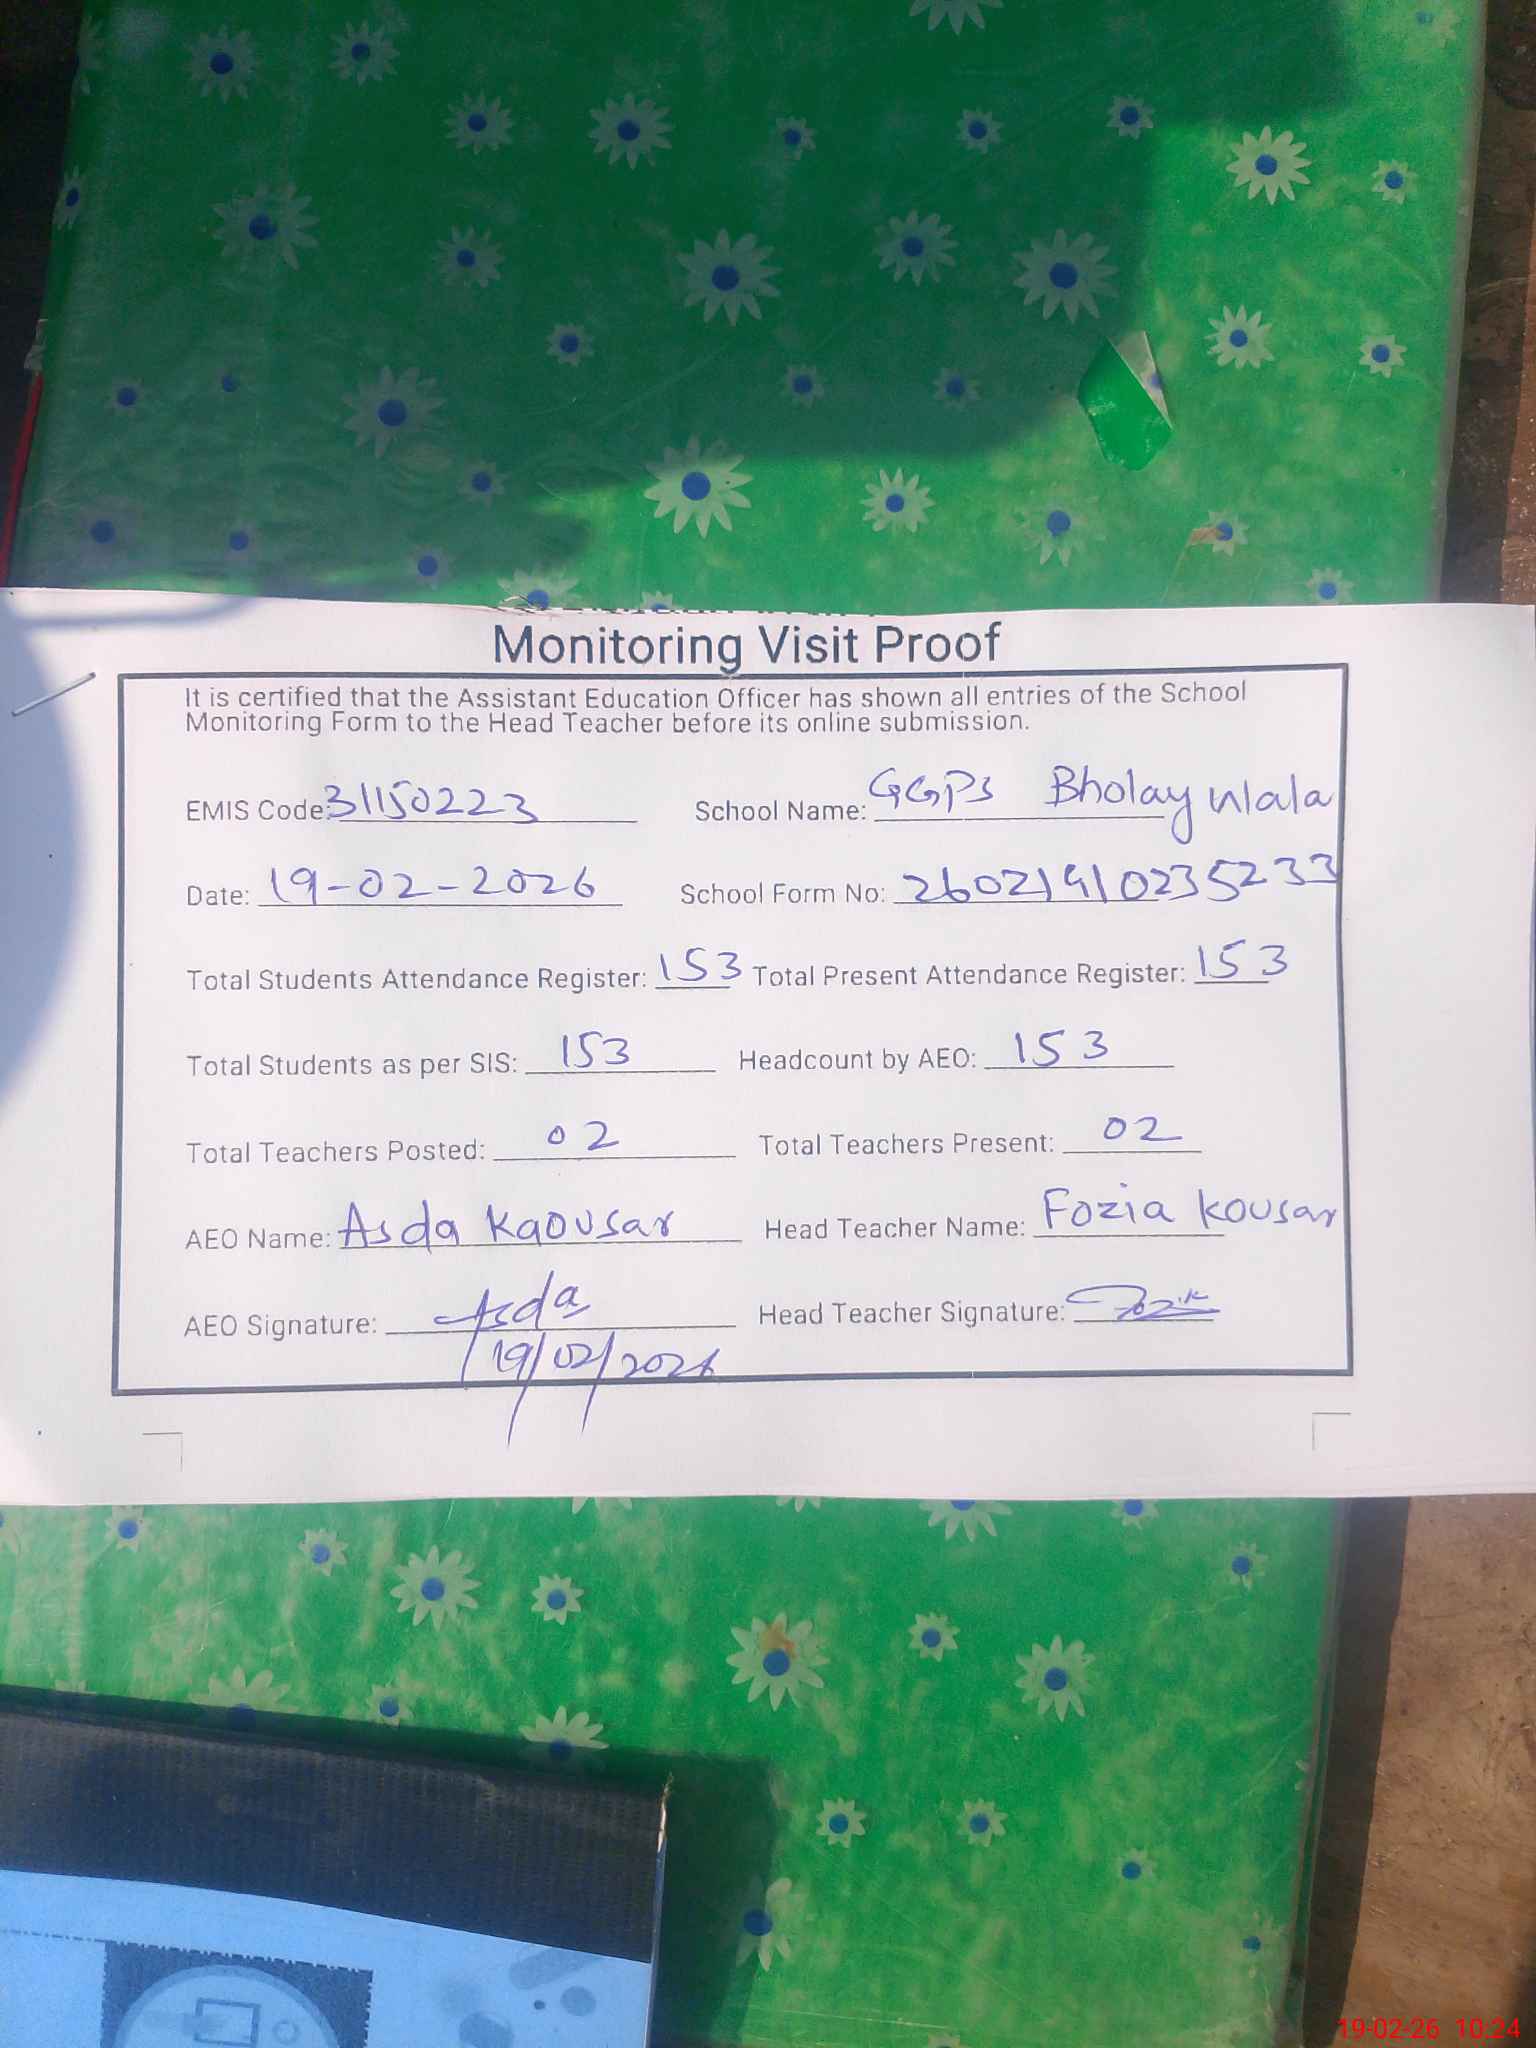 Monitoring Visit Proof
It is certified that the Assistant Education Officer has shown all entries of the School
Monitoring Form to the Head Teacher before its online submission.
EMIS Code: 31150223 School Name: GGPS Bholay wala
Date: 19-02-2026 School Form No: 26021910235233
Total Students Attendance Register: 153 Total Present Attendance Register: 153
Total Students as per SIS: 153 Headcount by AEO: 153
Total Teachers Posted: 02 Total Teachers Present: 02
AEO Name: Asda Kaousar Head Teacher Name: Fozia Kousar
AEO Signature: Asda Head Teacher Signature:
19/02/2026
19-02-26 10:24